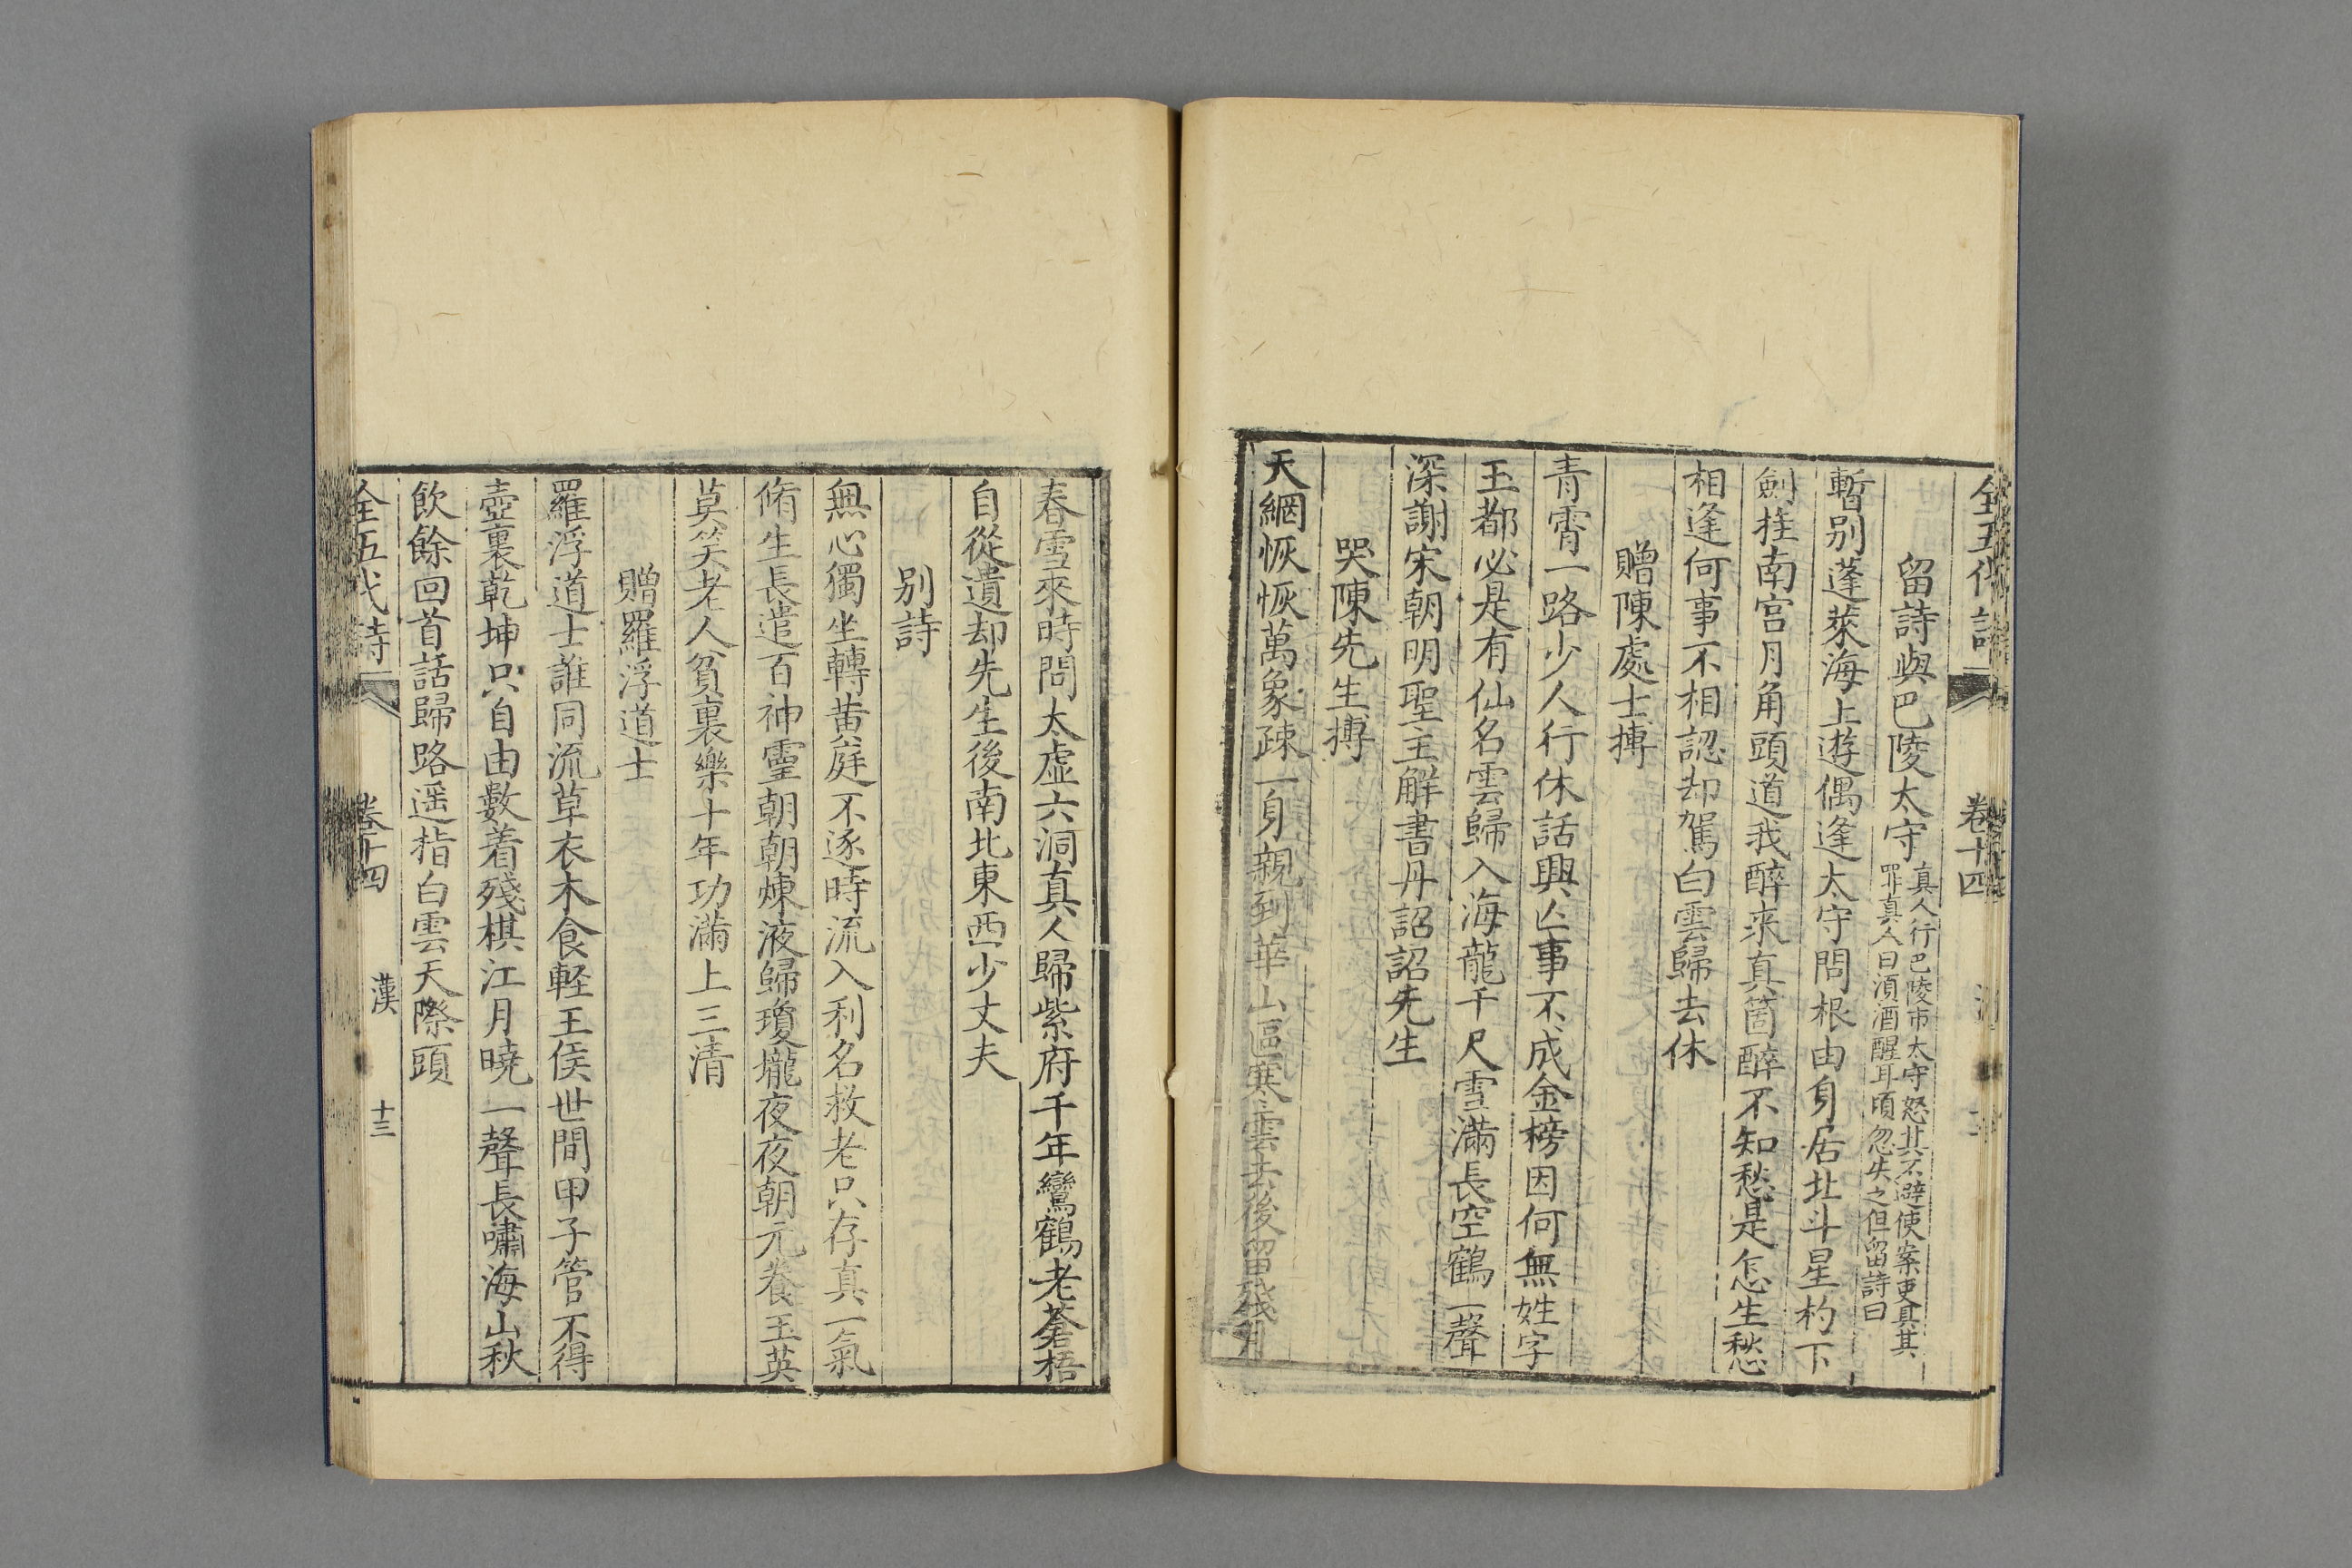 全五代詩 卷十四
留詩與巴陵太守 真人行巴陵市太守怒其不避使案吏具其
罪真人曰須酒醒耳頃忽失之但留詩曰
暫別蓬萊海上遊偶逢太守問根由身居北斗星杓下
劍挂南宮月角頭道我醉来真箇醉不知愁是怎生愁
相逢何事不相認却駕白雲歸去休
贈陳處士摶
青霄一路少人行休話興亡事不成金榜因何無姓字
玉都必是有仙名雲歸入海龍千尺雪滿長空鶴一聲
深謝宋朝明聖主解書丹詔詔先生
哭陳先生摶
天網恢恢萬象疎一身親到華山區寒雲去後留殘月
春雪來時問太虛六洞真人歸紫府千年鸞鶴老蒼梧
自從遺却先生後南北東西少丈夫
别詩
無心獨坐轉黄庭不逐時流入利名救老只存真一氣
脩生長遣百神靈朝朝煉液歸瓊壠夜夜朝元養玉英
莫笑老人貧裏樂十年功滿上三清
贈羅浮道士
羅浮道士誰同流草衣木食輕王侯世間甲子管不得
壺裏乾坤只自由數着殘棋江月曉一聲長嘯海山秋
飲餘回首話歸路遥指白雲天際頭
全五代詩 卷十四 漢 十三